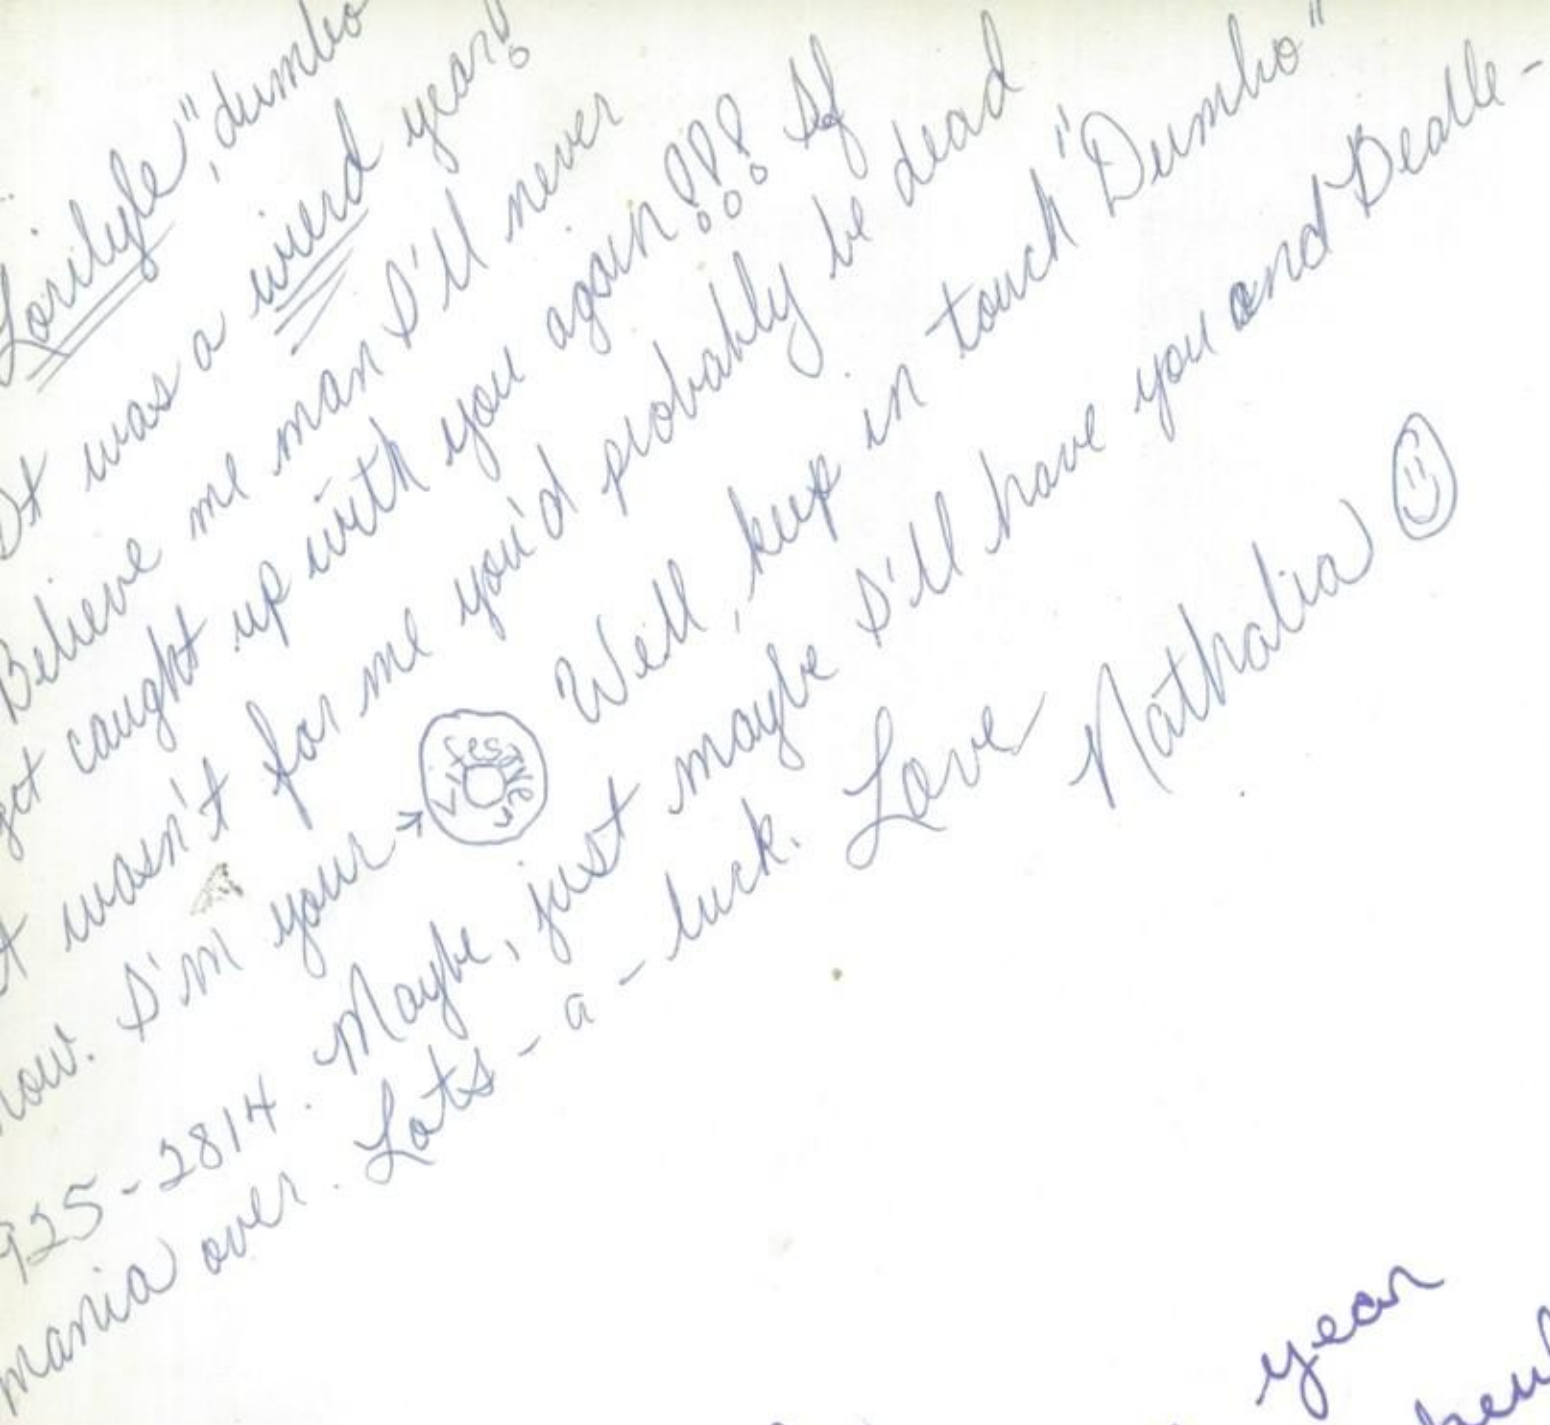 Lorilyle, "dumbo
It was a wierd year!
Believe me man I'll never
get caught up with you again!!! If
it wasn't for me you'd probably be dead
now. I'm your → lifesaver Well, keep in touch "Dumbo"
925-2814. Maybe, just maybe I'll have you and Beatle-
mania over. Lots-a-luck. Love Nathalia
year